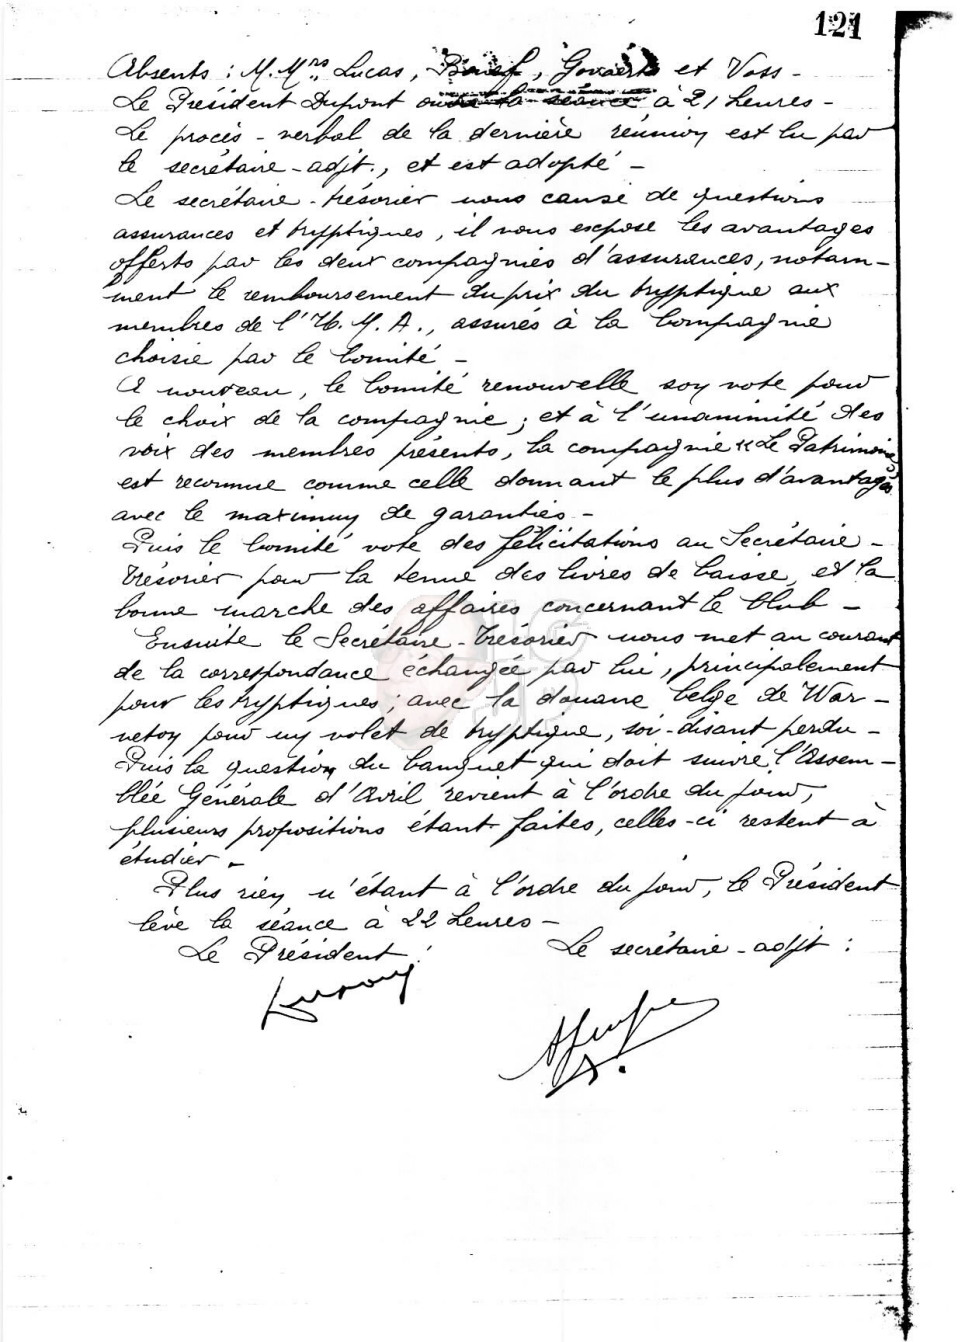 121
Absents : M.Mrs Lucas, Govaerts et Voss -
Le Président Dupont ouvre la séance à 21 heures -
Le procès-verbal de la dernière réunion est lu par
le secrétaire-adjt., et est adopté -
Le secrétaire-trésorier nous cause de questions
assurances et tryptiques, il nous expose les avantages
offerts par les deux compagnies d'assurances, notam-
ment le remboursement du prix du tryptique aux
membres de l'H.M.A., assurés à la Compagnie
choisie par le Comité -
A nouveau, le Comité renouvelle son vote pour
le choix de la compagnie; et à l'unanimité des
voix des membres présents, la compagnie « Le Patrimoine »
est reconnue comme celle donnant le plus d'avantages
avec le maximum de garanties -
Puis le Comité vote des félicitations au Secrétaire-
Trésorier pour la tenue des livres de Caisse, et la
bonne marche des affaires concernant le Club -
Ensuite le Secrétaire-Trésorier nous met au courant
de la correspondance échangée par lui, principalement
pour les tryptiques; avec la douane belge de War-
neton pour un volet de tryptique, soi-disant perdu -
Puis la question du banquet qui doit suivre l'Assem-
blée Générale d'Avril revient à l'ordre du jour,
plusieurs propositions étant faites, celles-ci restent à
étudier -
Plus rien n'étant à l'ordre du jour, le Président
lève la séance à 22 heures -
Le Président : Le secrétaire-adjt :
Dupont